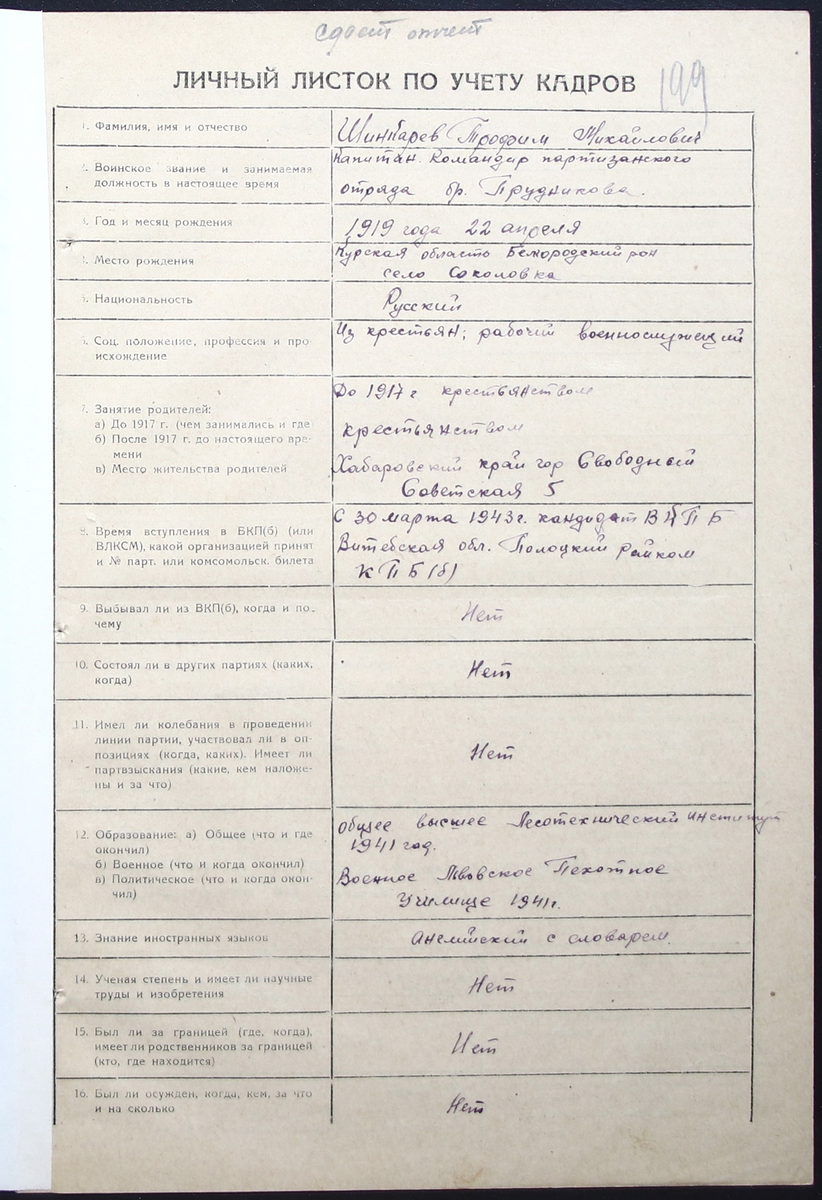 сдает отчет
ЛИЧНЫЙ ЛИСТОК ПО УЧЕТУ КАДРОВ
199
1. Фамилия, имя и отчество
Шинкарев Трофим Михайлович
2. Воинское звание и занимаемая
должность в настоящее время
Капитан. Командир партизанского
отряда бр. Прудникова.
3. Год и месяц рождения
1919 года 22 апреля
4. Место рождения
Курская область Белгородский рон
село Соколовка
5. Национальность
Русский
6. Соц. положение, профессия и про
исхождение
Из крестьян; рабочий военнослужещий
7. Занятие родителей:
а) До 1917 г. (чем занимались и где
б) После 1917 г. до настоящего вре-
мени
в) Место жительства родителей
До 1917 г крестьянством
крестьянством
Хабаровский край гор Свободный
Советская 5
8. Время вступления в БКП(б) (или
ВЛКСМ), какой организацией принят
и № парт. или комсомольск. билета
С 30 марта 1943 г. кандидат ВКПБ
Витебская обл. Полоцкий райком
КПБ(б)
9. Выбывал ли из ВКП(б), когда и по-
чему
Нет
10. Состоял ли в других партиях (каких,
когда)
Нет
11. Имел ли колебания в проведении
линии партии, участвовал ли в оп-
позициях (когда, каких). Имеет ли
партвзыскания (какие, кем наложе-
ны и за что)
Нет
12. Образование: а) Общее (что и где
окончил)
б) Военное (что и когда окончил)
в) Политическое (что и когда окон-
чил)
Общее высшее Лесотехнический институт
1941 год.
Военное Львовское Пехотное
Училище 1941 г.
13. Знание иностранных языков
Английский с словарем.
14. Ученая степень и имеет ли научные
труды и изобретения
Нет
15. Был ли за границей (где, когда),
имеет ли родственников за границей
(кто, где находится)
Нет
16. Был ли осужден, когда, кем, за что
и на сколько
Нет